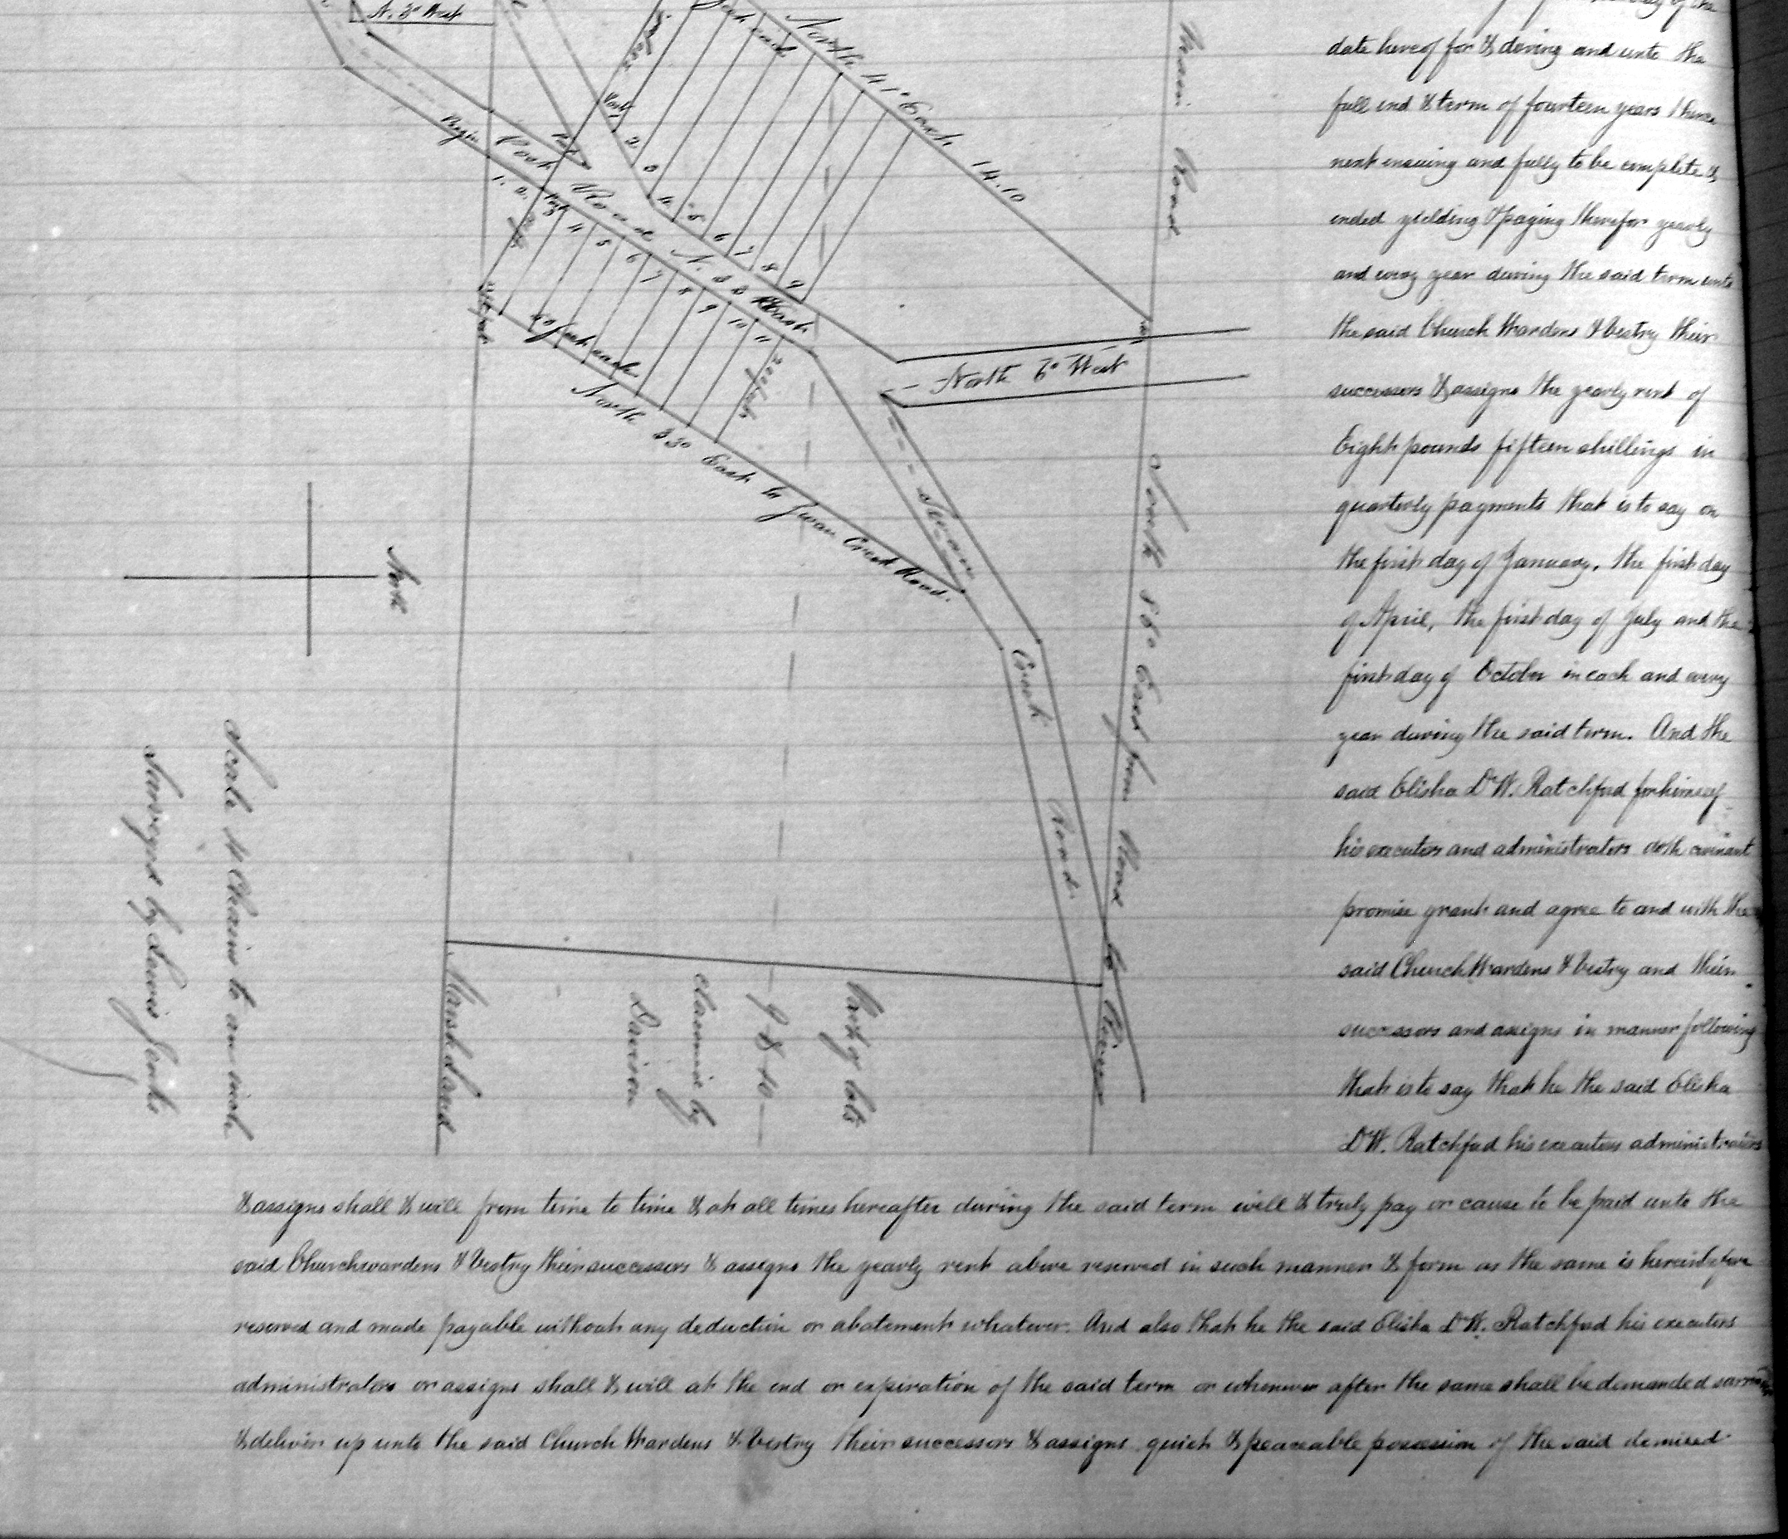 N. 3° West
North 41° East 14.10
Main Road
Begin
Post Road N. 53 East
Post
Port
1 2 3 4 5 6 7 8 9
1. 2. 4 5 6 7 8 9 10 11
40 feet each
North 53° East to Swan Creek Road.
North 6° West
Swan Creek Road
North 86° East from Road to River
North
Scale 4 Chains to an inch
Surveyed by Lewis Jenks
Marsh Land
Part of lots
9 & 10
claimed by
Davison
date hereof for & during and unto the
full end & term of fourteen years thence
next ensuing and fully to be complete &
ended yielding & paying therefor yearly
and every year during the said term unto
the said Church Wardens & Vestry their
successors & assigns the yearly rent of
Eight pounds fifteen shillings in
quarterly payments that is to say on
the first day of January, the first day
of April, the first day of July and the
first day of October in each and every
year during the said term. And the
said Elisha DW. Ratchford for himself
his executors and administrators doth covinant
promise grant and agree to and with the
said Church Wardens & Vestry and their
successors and assigns in manner following
that is to say that he the said Elisha
DW. Ratchford his executors administrators
& assigns shall & will from time to time & at all times hereafter during the said term well & truly pay or cause to be paid unto the
said Churchwardens & Vestry their successors & assigns the yearly rent above reserved in such manner & form as the same is hereinbefore
reserved and made payable without any deduction or abatement whatever. And also that he the said Elisha DW. Ratchford his executors
administrators or assigns shall & will at the end or expiration of the said term or whenever after the same shall be demanded
& deliver up unto the said Church Wardens & Vestry their successors & assigns quiet & peaceable possession of the said demised